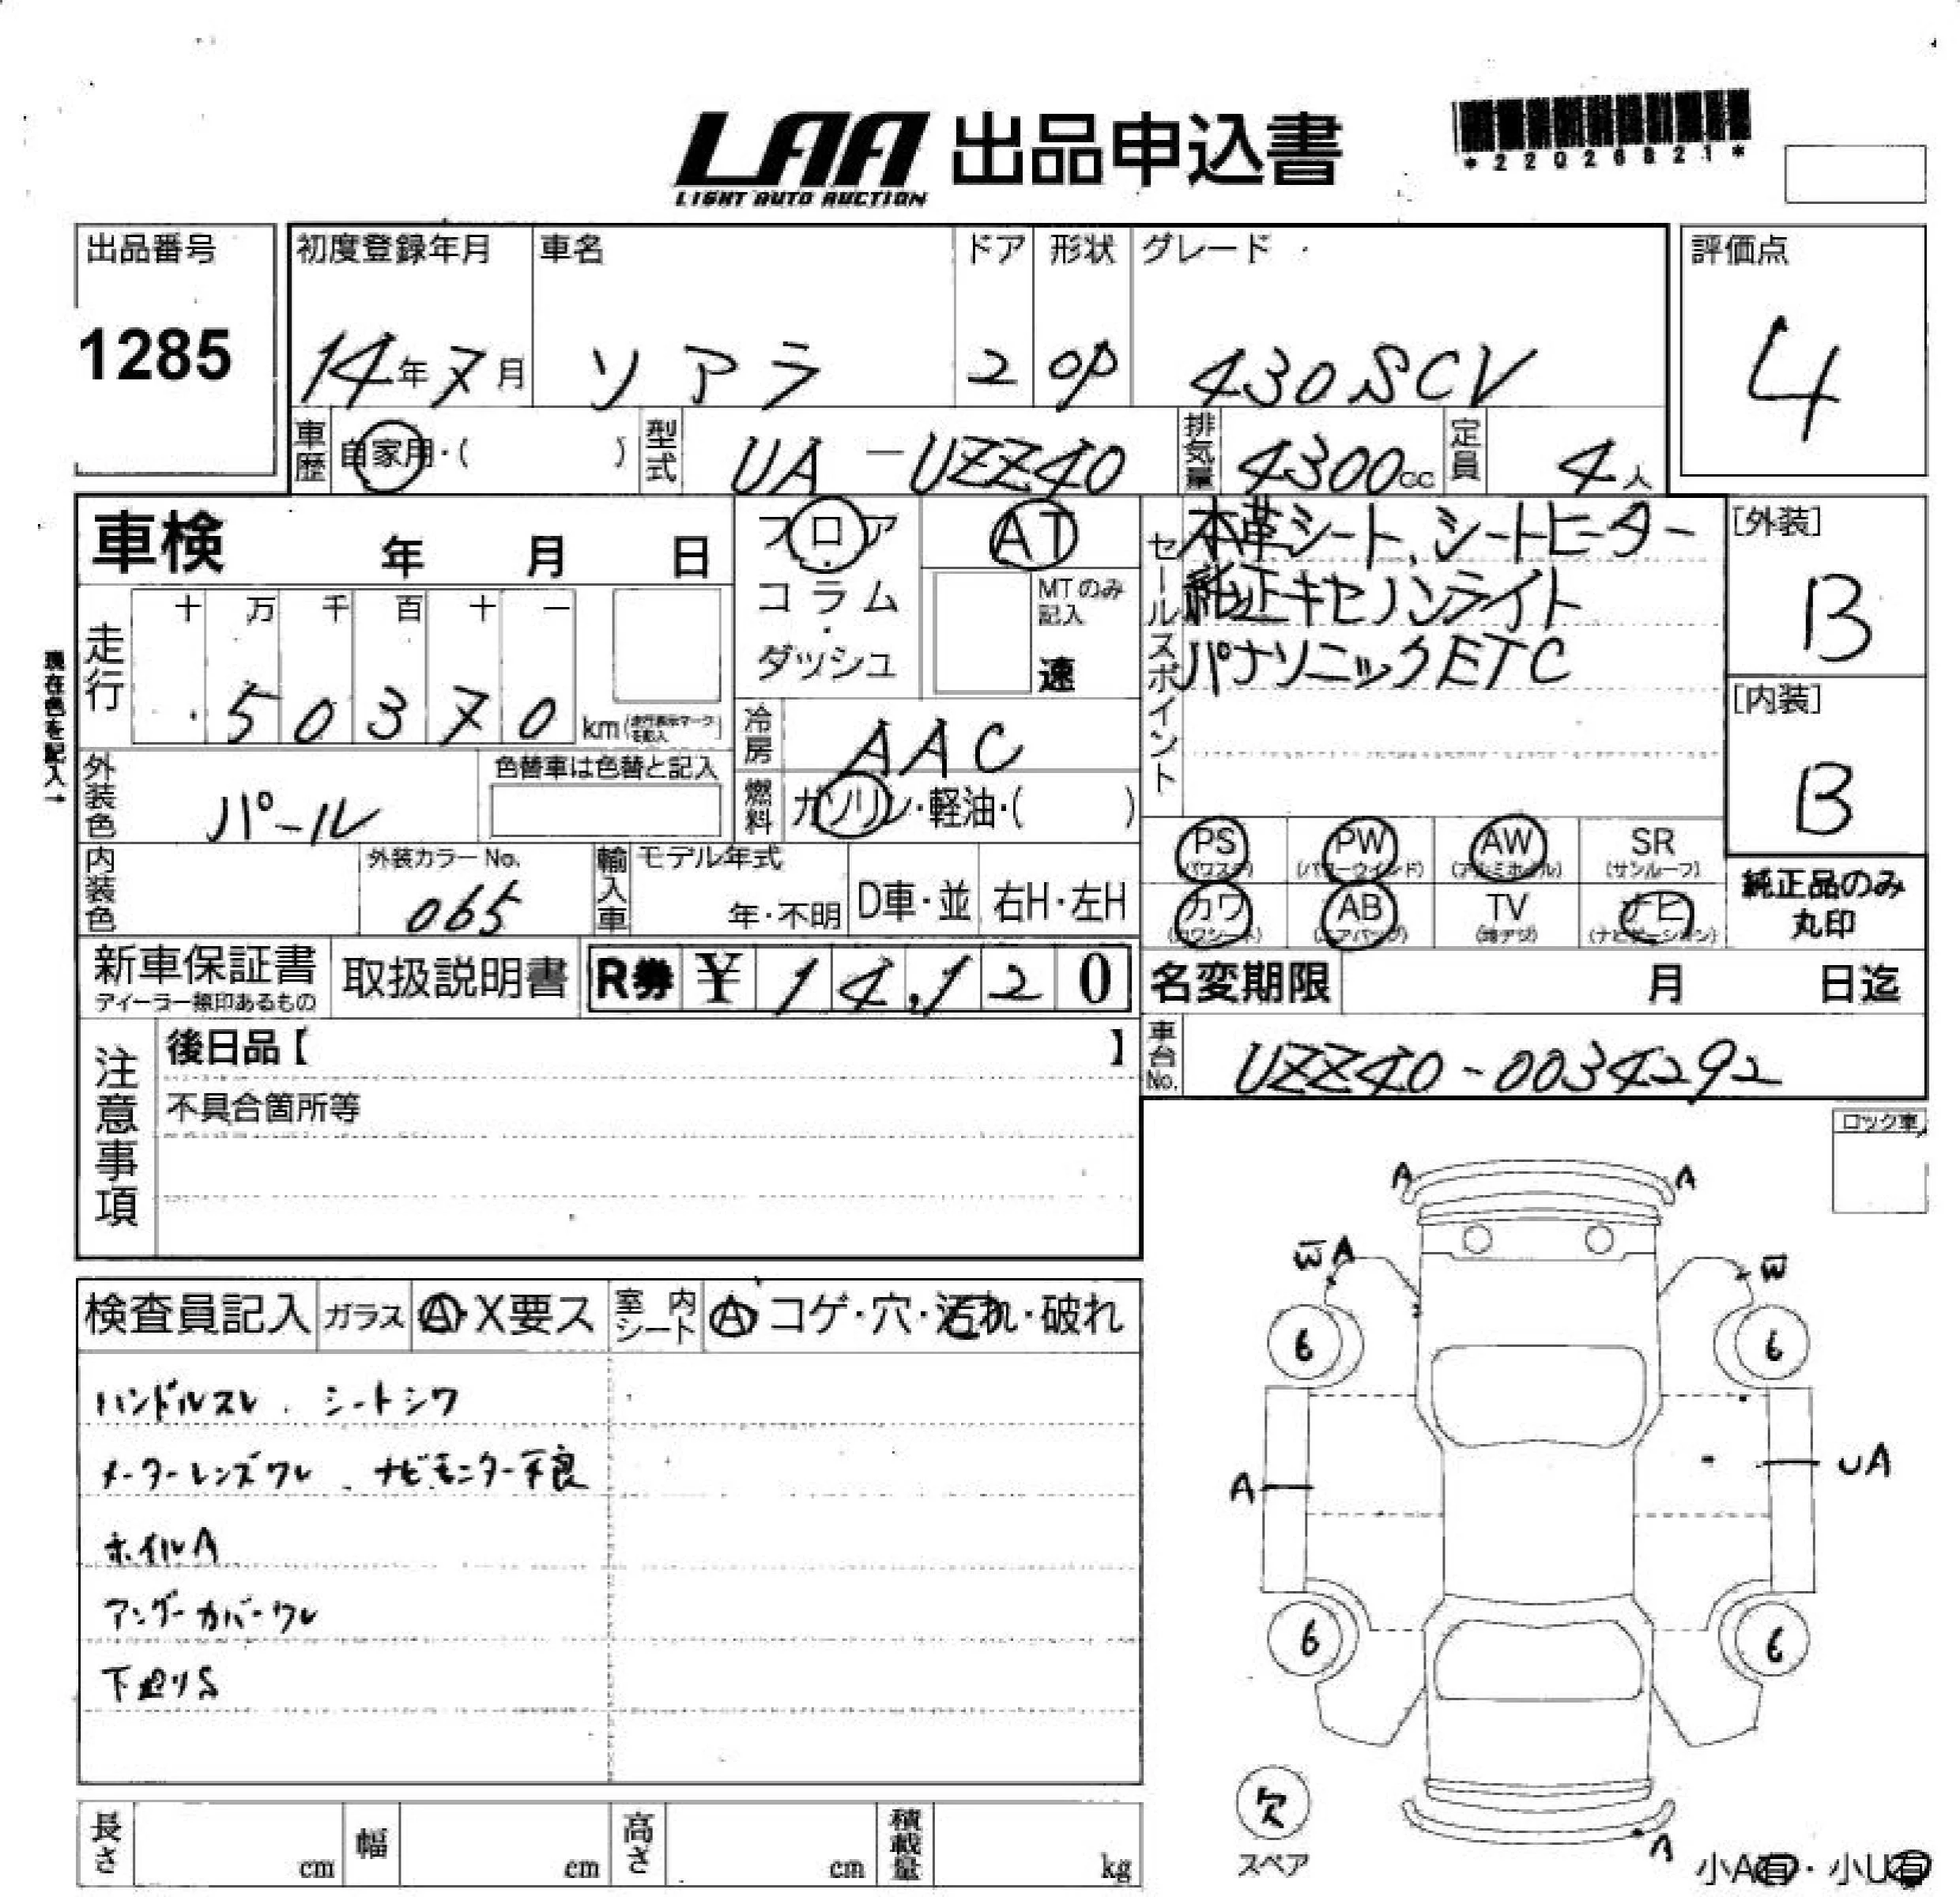 LAA 出品申込書
LIGHT AUTO AUCTION
*22026821*
出品番号
1285
初度登録年月 車名 ドア 形状 グレード
14年7月 ソアラ 2 OP 430SCV
評価点
4
車歴 自家用・( ) 型式 UA-UZZ40 排気量 4300cc 定員 4人
車検 年 月 日
フロア・コラム・ダッシュ
AT
MTのみ記入
速
セールスポイント
本革シート、シートヒーター
純正キセノンライト
パナソニックETC
[外装]
B
[内装]
B
現在色を記入→
走行 十 万 千 百 十 一
50370 km (走行表示マークを記入)
冷房 AAC
外装色 パール 色替車は色替と記入
燃料 ガソリン・軽油・( )
PS (パワステ) PW (パワーウインド) AW (アルミホイル) SR (サンルーフ)
カワ (カワシート) AB (エアバッグ) TV (地デジ) ナビ (ナビゲーション)
純正品のみ
丸印
内装色 外装カラーNo. 065 輸入車 モデル年式 年・不明 D車・並 右H・左H
新車保証書 取扱説明書 R券 ¥ 14,120
ディーラー捺印あるもの
名変期限 月 日迄
車台No. UZZ40-0034292
注意事項
後日品【 】
不具合箇所等
ロック車
検査員記入 ガラス A・X要ス 室内シート A コゲ・穴・汚れ・破れ
ハンドルスレ . シートシワ
メーターレンズワレ . ナビモニター不良
ホイルA
アンダーカバーワレ
下廻りS
A A
W A W
6 6
A UA
6 6
欠
スペア
A
小A有・小U有
長さ cm 幅 cm 高さ cm 積載量 kg